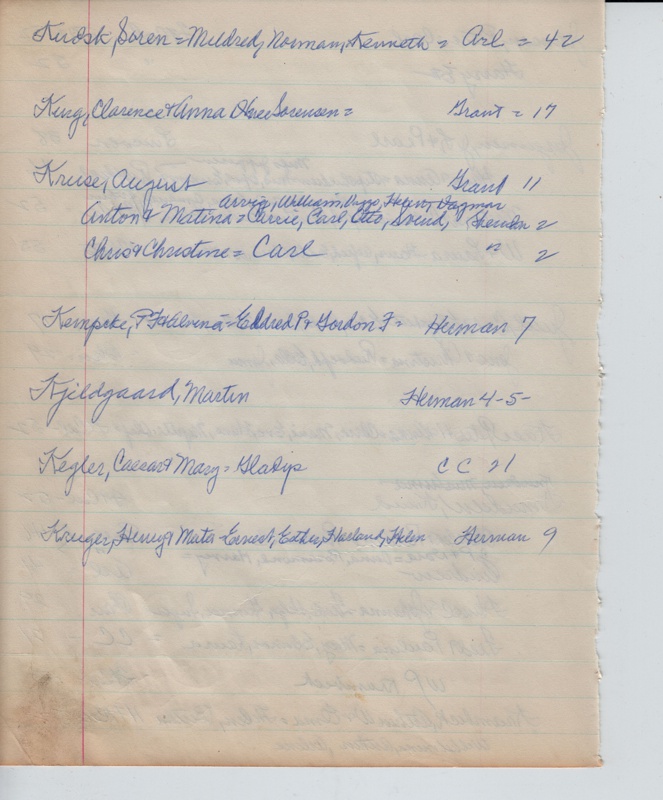 Kudsk, Soren = Mildred, Norman, Kenneth = Arl = 42
King, Clarence & Anna Sorensen = Grant = 17
Kruse, August Grant 11
Arvig, William, Viggo, Helen, Dagmar
Anton & Matina = Carrie, Carl, Otto, Svend, Sheridan 2
Chris & Christine = Carl " 2
Kempcke, P F & Alvena = Eldred P & Gordon F = Herman 7
Kjeldgaard, Martin Herman 4-5-
Kegler, Caesar & Mary = Gladys C C 21
Kruger, Henry & Meta = Ernest, Esther, Harland, Helen Herman 9